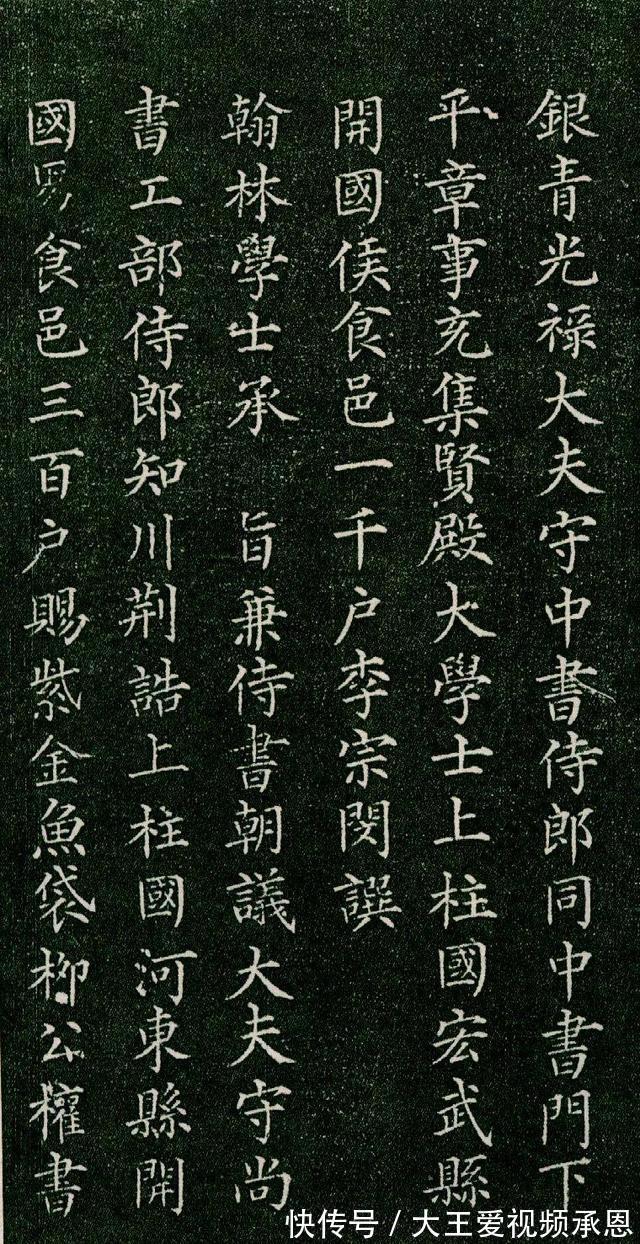 銀青光祿大夫守中書侍郎同中書門下
平章事充集賢殿大學士上柱國宏武縣
開國侯食邑一千户李宗閔譔
翰林學士承 旨兼侍書朝議大夫守尚
書工部侍郎知川荆誥上柱國河東縣開
國男食邑三百户賜紫金魚袋柳公權書
快传号 / 大王爱视频承恩